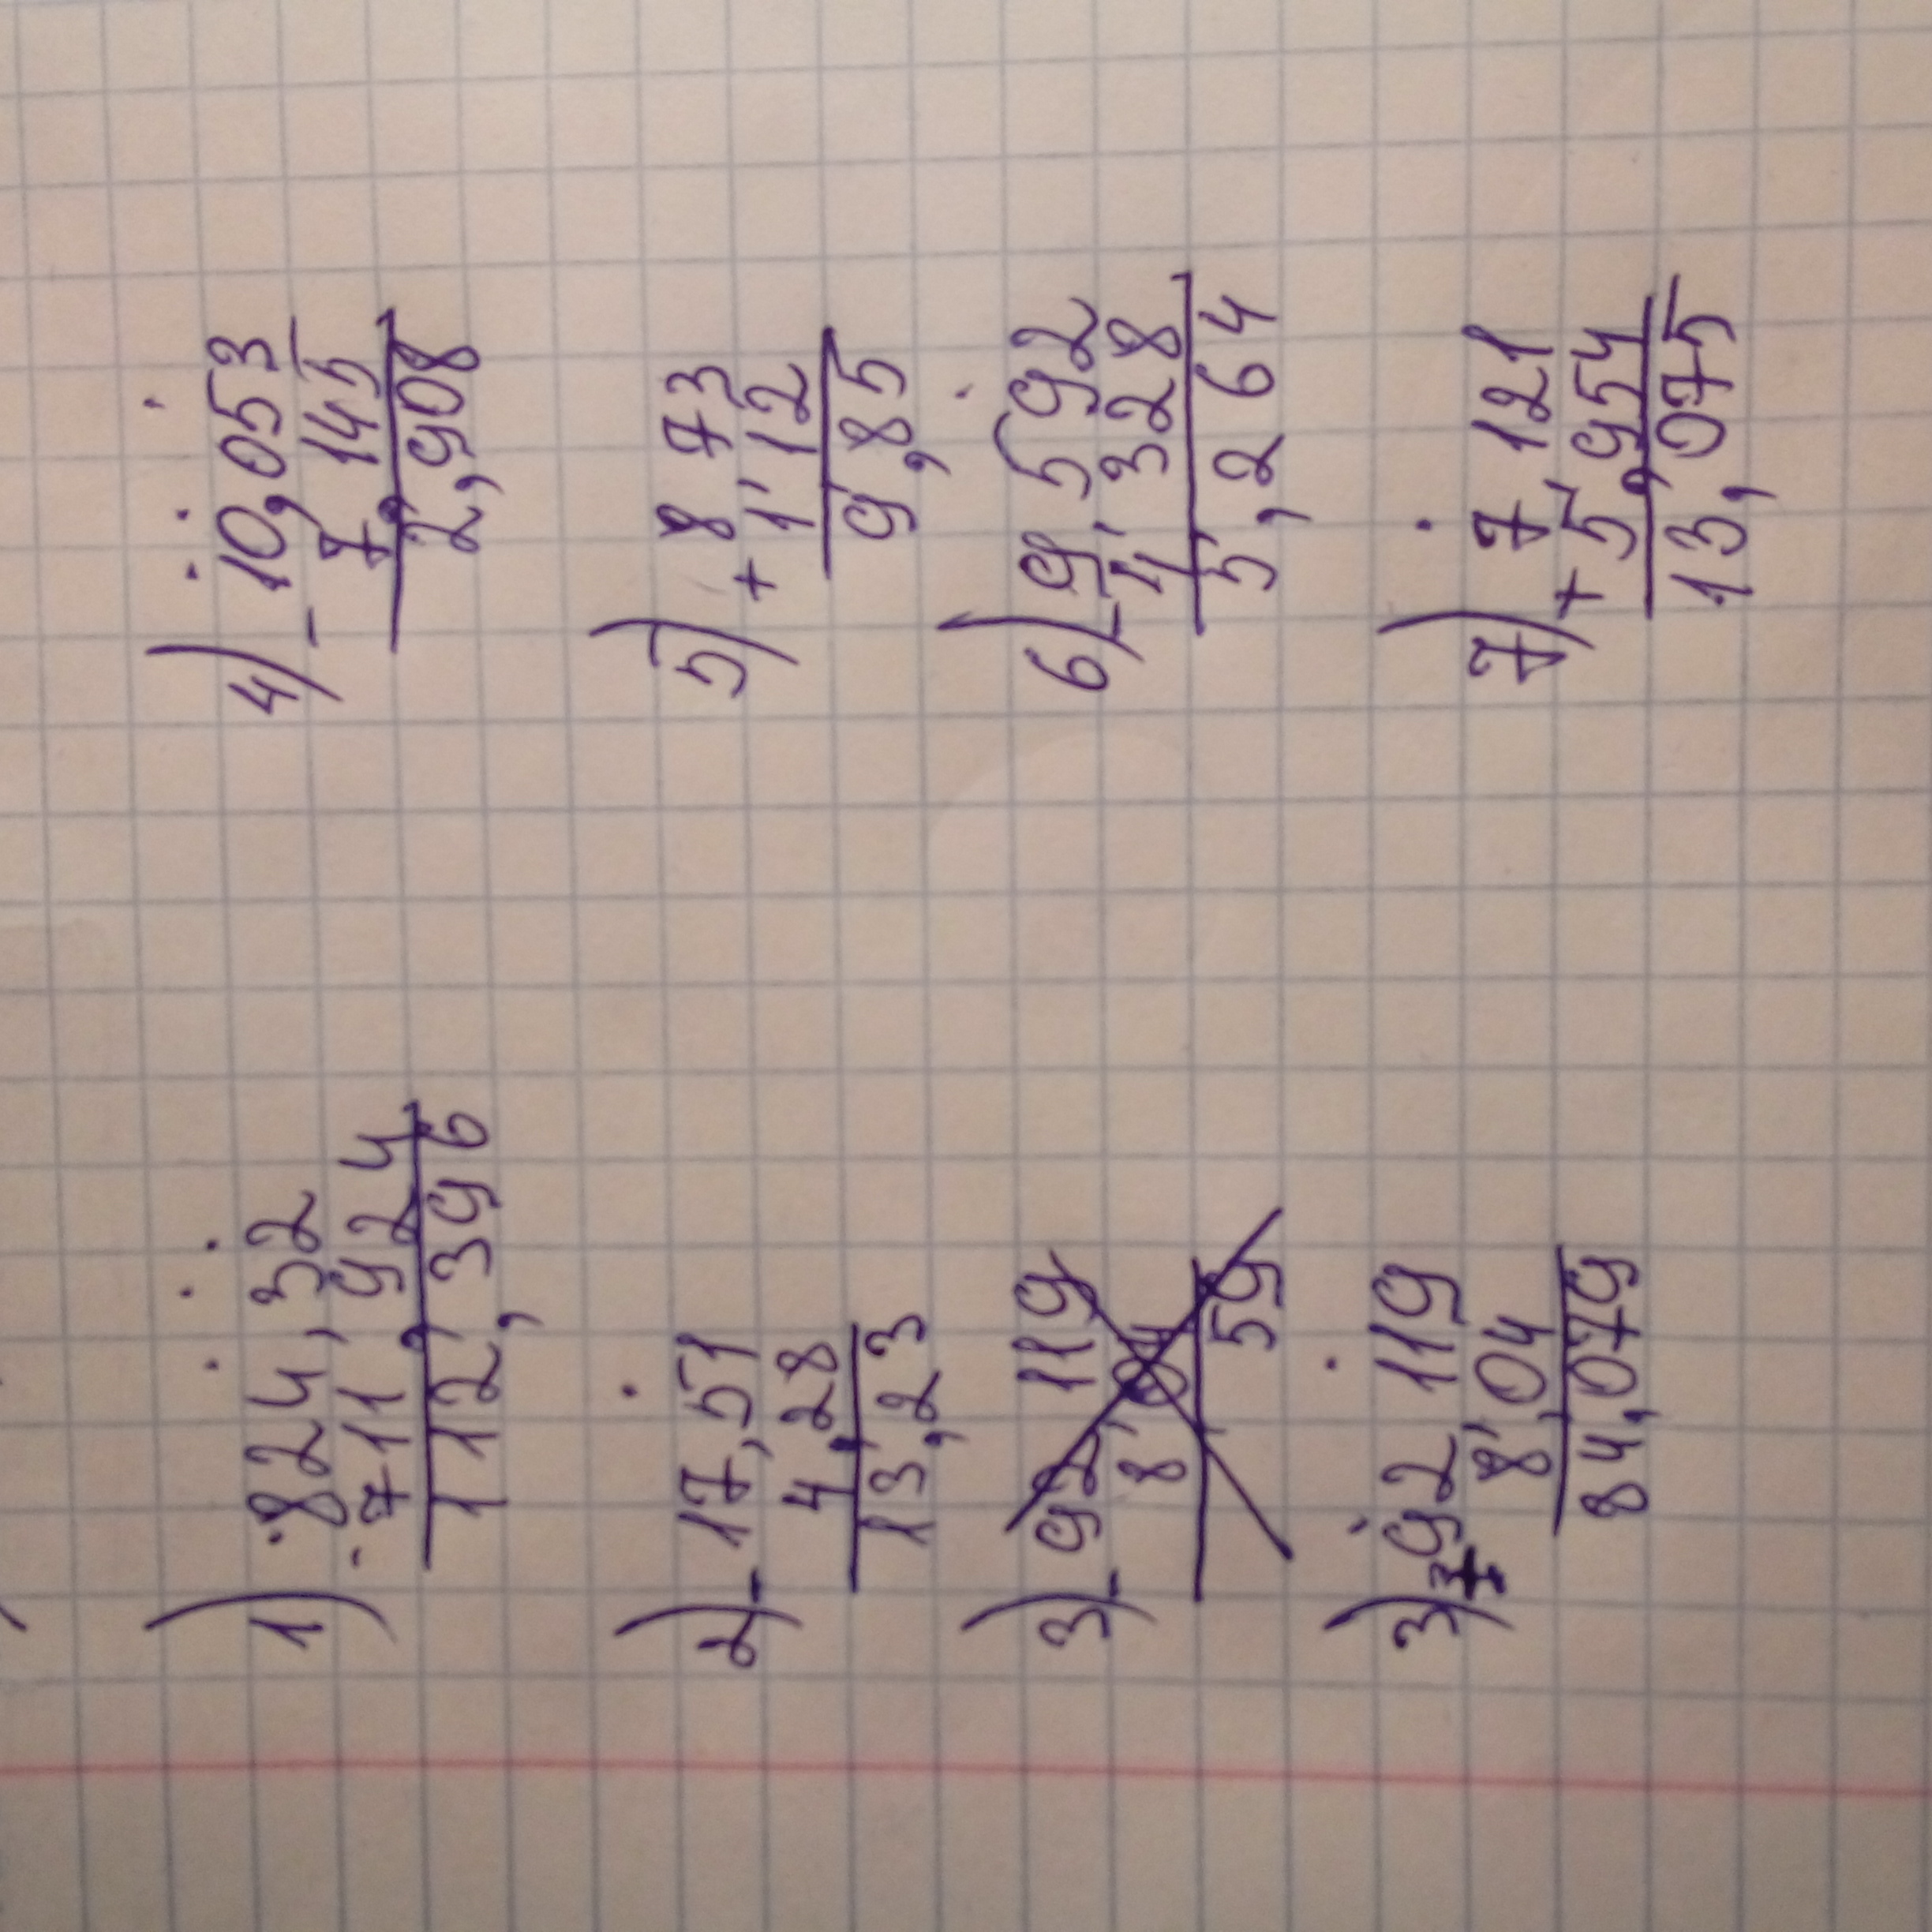 1) 824,32
- 711,924
112,396
2) - 17,51
4,28
13,23
3) - 92,119
8,04
59
3) - 92,119
8,04
84,079
4) - 10,053
7,145
2,908
5) 8,73
+ 1,12
9,85
6) - 9,592
4,328
5,264
7) 7,121
+ 5,954
13,075